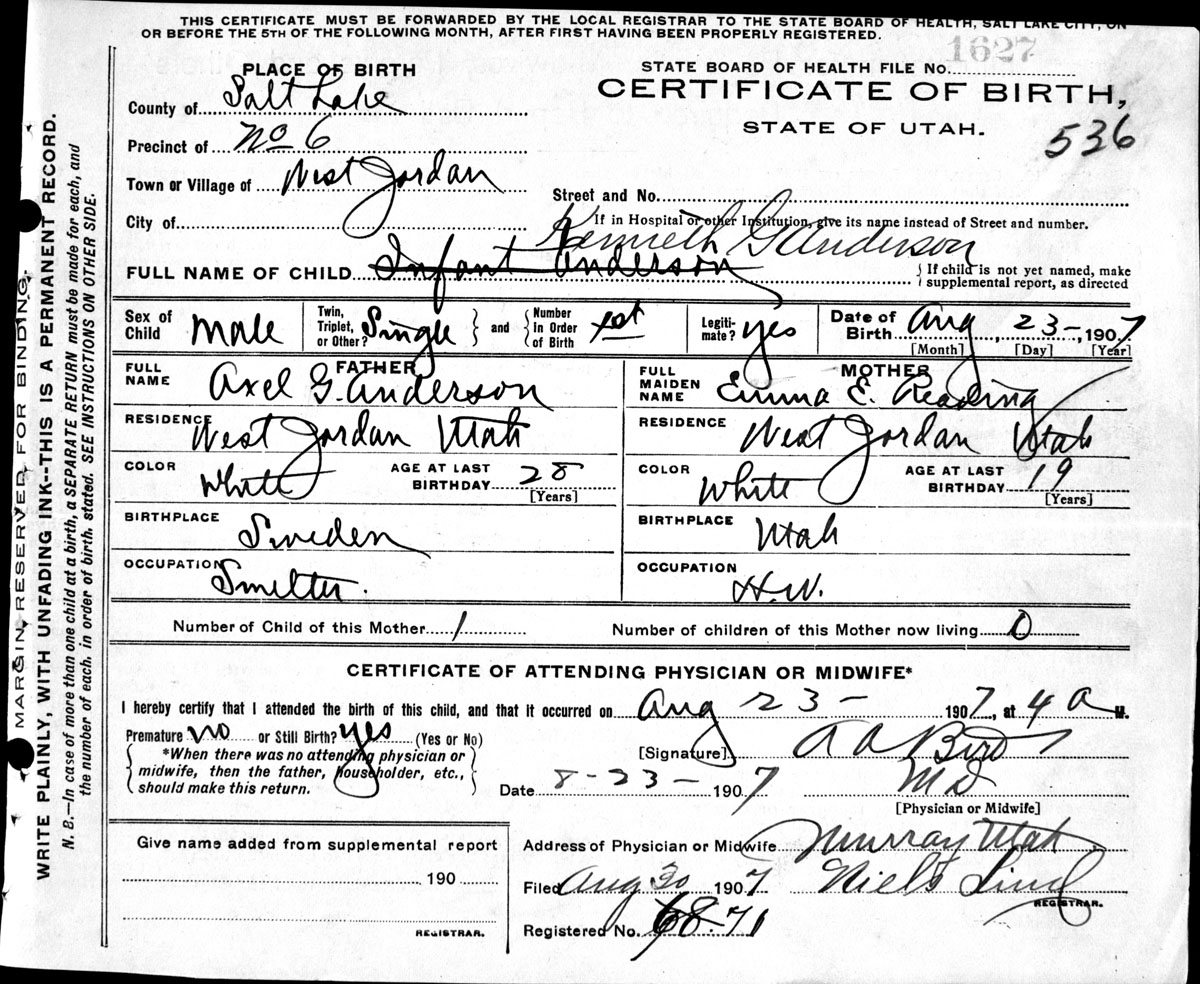 THIS CERTIFICATE MUST BE FORWARDED BY THE LOCAL REGISTRAR TO THE STATE BOARD OF HEALTH, SALT LAKE CITY, ON
OR BEFORE THE 5TH OF THE FOLLOWING MONTH, AFTER FIRST HAVING BEEN PROPERLY REGISTERED.
1627
PLACE OF BIRTH
STATE BOARD OF HEALTH FILE NO.
County of Salt Lake
CERTIFICATE OF BIRTH,
STATE OF UTAH.
536
Precinct of No 6
Town or Village of West Jordan
Street and No.
City of
If in Hospital or other Institution, give its name instead of Street and number.
Kenneth G Anderson
FULL NAME OF CHILD Infant Anderson
If child is not yet named, make supplemental report, as directed
Sex of Child Male
Twin, Triplet, or Other? Single and Number In Order of Birth 1st
Legitimate? yes
Date of Birth Aug 23-, 1907
[Month] [Day] [Year]
FATHER
FULL NAME Axel G. Anderson
RESIDENCE West Jordan Utah
COLOR White AGE AT LAST BIRTHDAY 28
[Years]
BIRTHPLACE Sweden
OCCUPATION Smelter.
MOTHER
FULL MAIDEN NAME Emma E. Reading
RESIDENCE West Jordan Utah
COLOR White AGE AT LAST BIRTHDAY 19
[Years]
BIRTHPLACE Utah
OCCUPATION H.W.
Number of Child of this Mother 1 Number of children of this Mother now living 0
CERTIFICATE OF ATTENDING PHYSICIAN OR MIDWIFE*
I hereby certify that I attended the birth of this child, and that it occurred on Aug 23- 1907, at 4 a M.
Premature no or Still Birth? yes (Yes or No)
*When there was no attending physician or
midwife, then the father, householder, etc.,
should make this return.
[Signature] A A Bird
M D
Date 8-23- 1907
[Physician or Midwife]
Give name added from supplemental report
190
REGISTRAR.
Address of Physician or Midwife Murray Utah
Filed Aug 30 1907 Niels Lind
REGISTRAR.
Registered No. 68-71
MARGIN RESERVED FOR BINDING.
WRITE PLAINLY, WITH UNFADING INK--THIS IS A PERMANENT RECORD.
N. B.—In case of more than one child at a birth, a SEPARATE RETURN must be made for each, and
the number of each, in order of birth, stated. SEE INSTRUCTIONS ON OTHER SIDE.